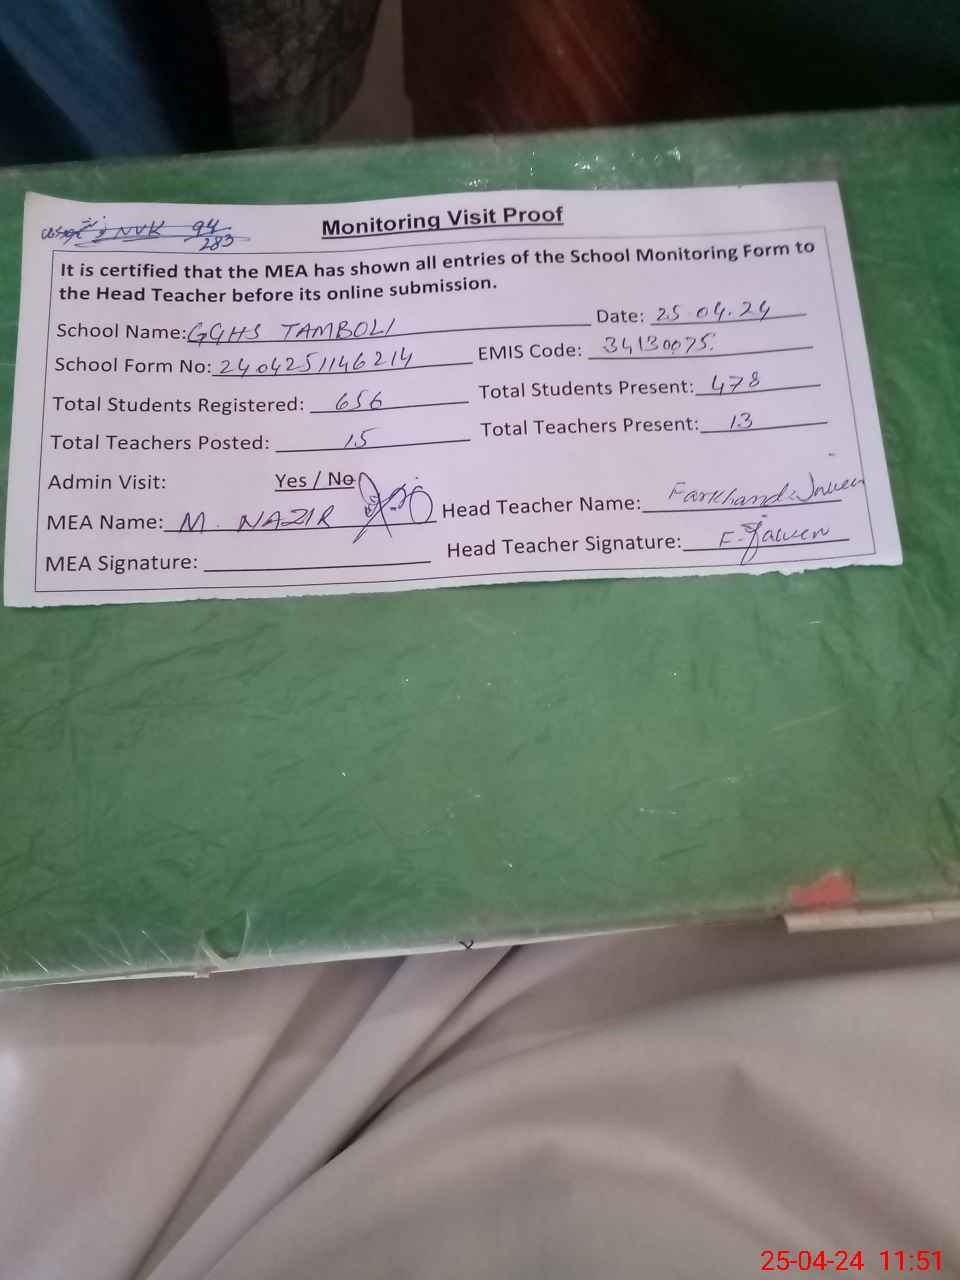 NVK 94
283
Monitoring Visit Proof
It is certified that the MEA has shown all entries of the School Monitoring Form to
the Head Teacher before its online submission.
School Name: GGHS TAMBOLI Date: 25.04.24
School Form No: 2404251146214 EMIS Code: 34130075
Total Students Registered: 656 Total Students Present: 478
Total Teachers Posted: 15 Total Teachers Present: 13
Admin Visit: Yes / No
MEA Name: M. NAZIR Head Teacher Name: Farkhanda
MEA Signature: Head Teacher Signature:
25-04-24 11:51